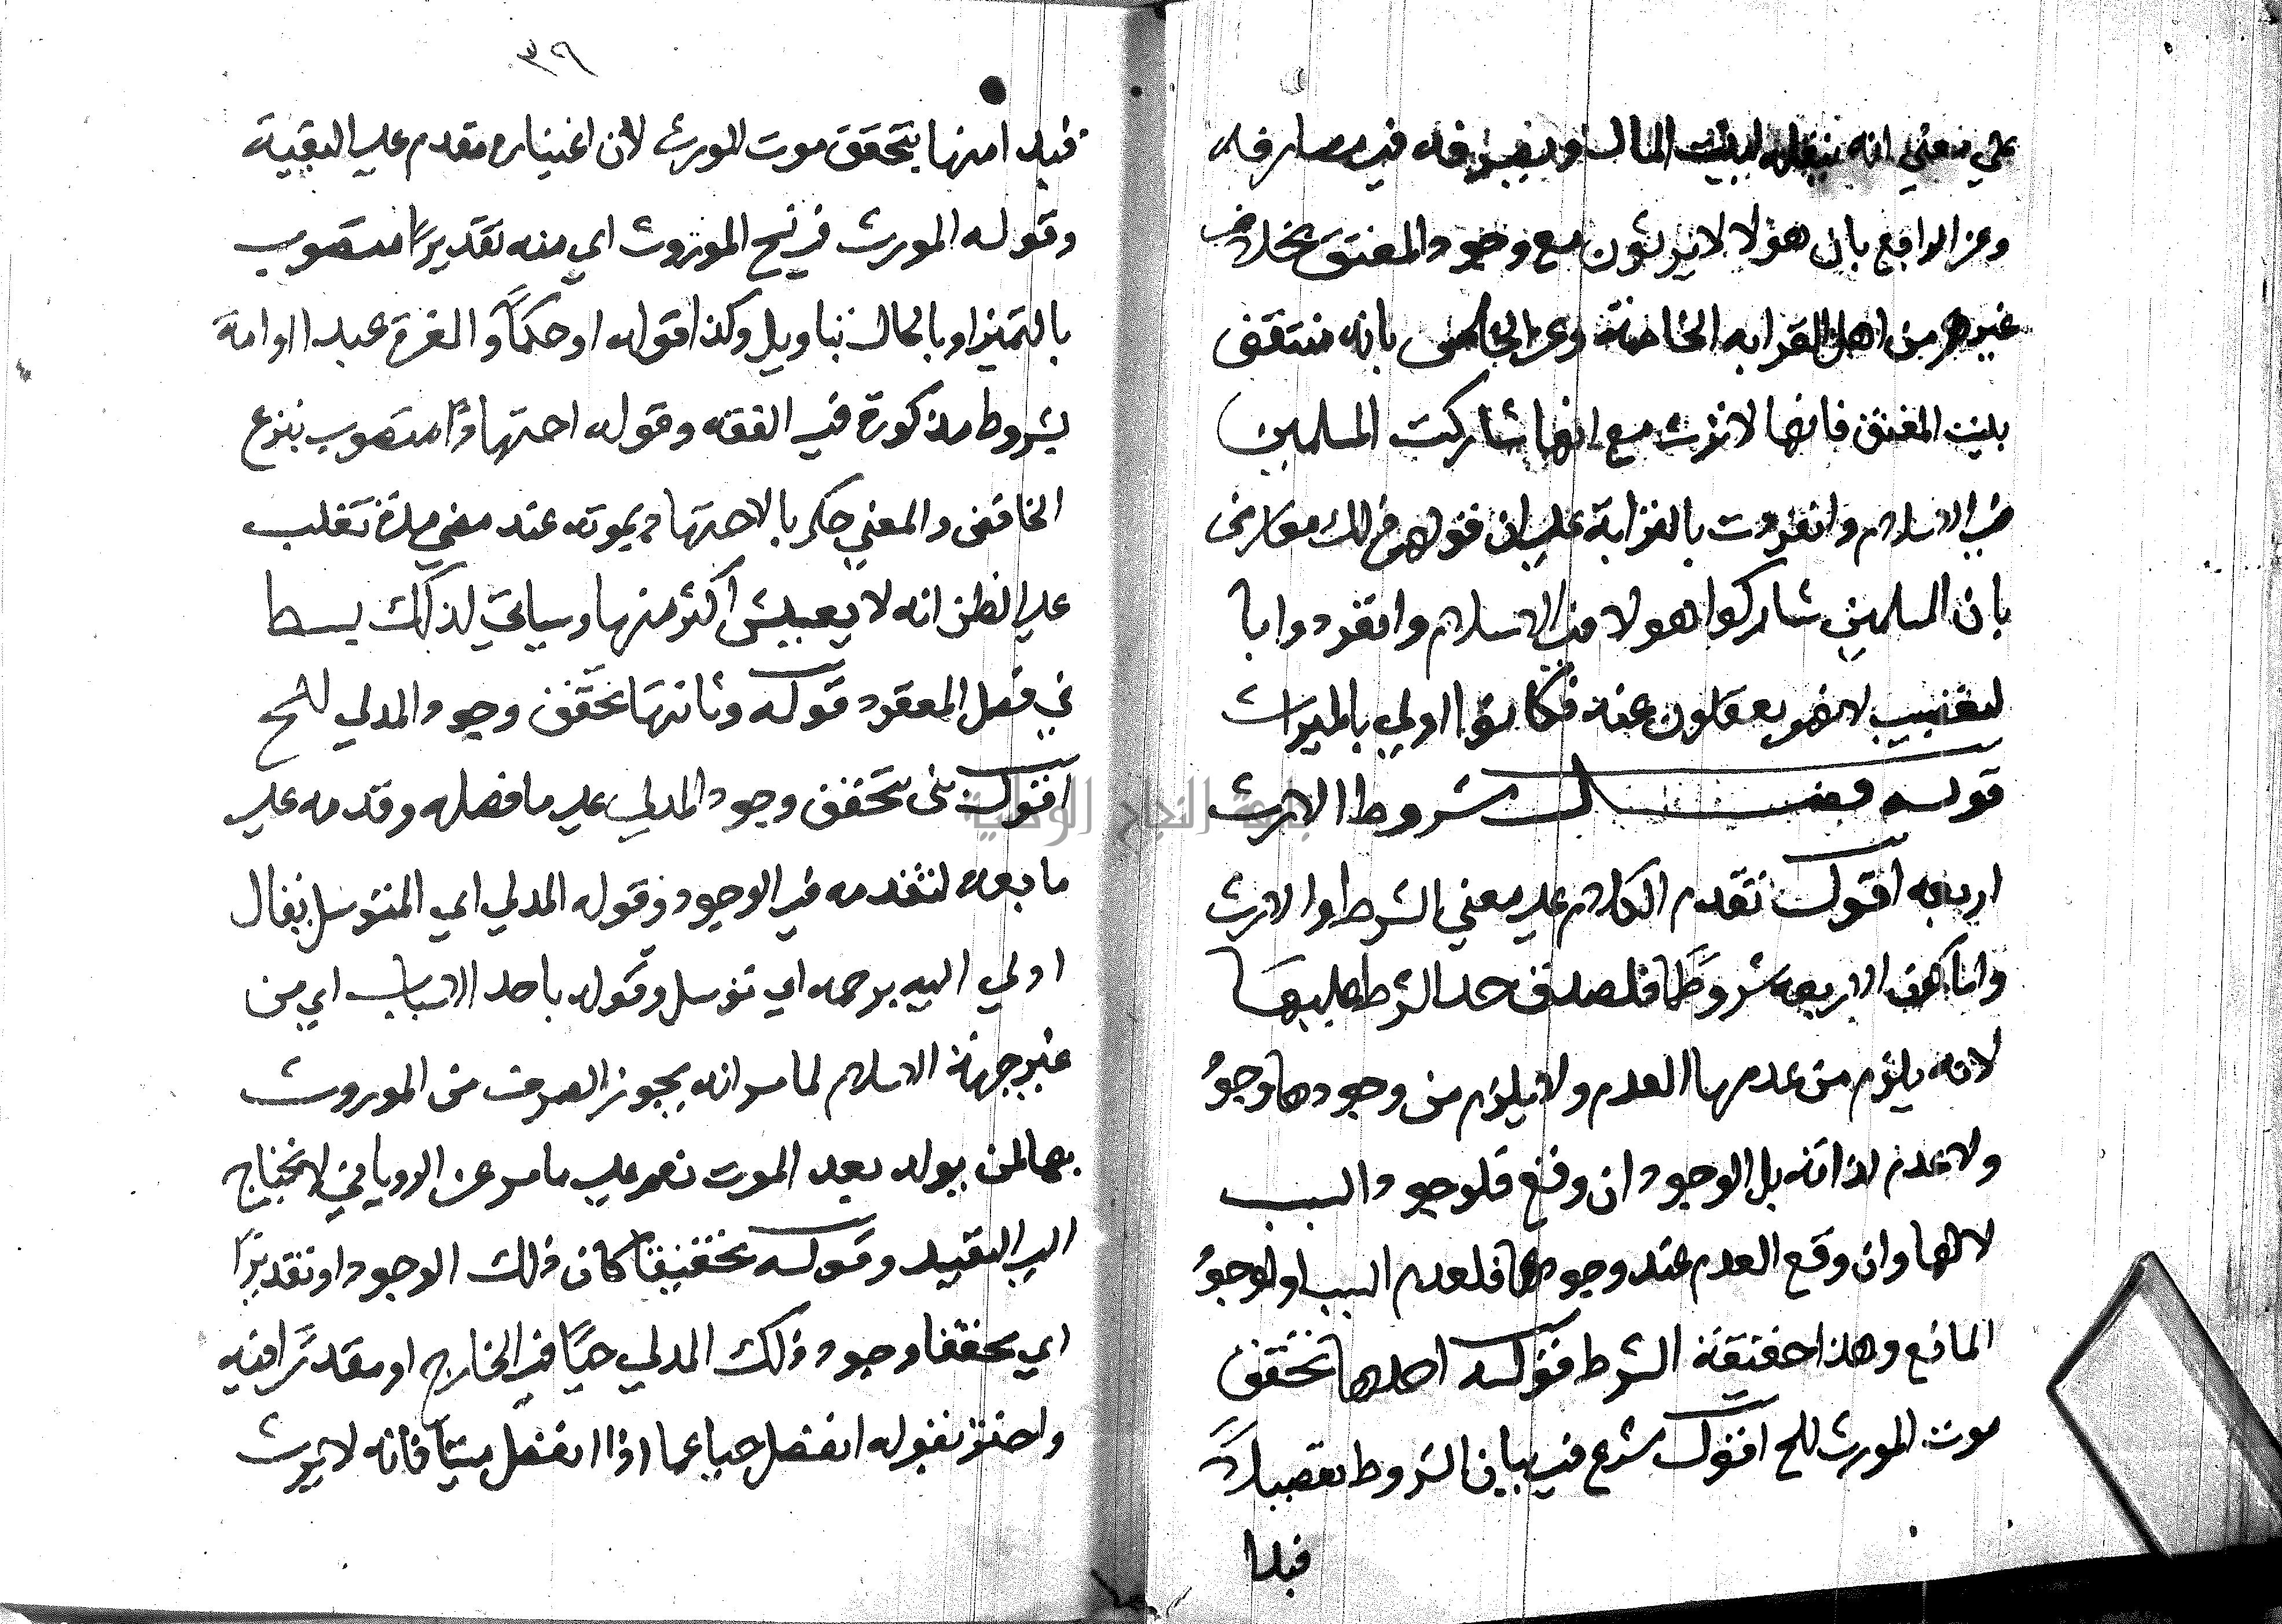 علي معني انه ينقل لبيت المال ويصرفه في مصارفه
وعن الرابع بان هولا لا يرثون مع وجود المعتق بخلاف
غيرهم من اهل القرابه الخاصة وعن الخامس بانه منتقض
ببنت المعتق فانها لا ترث مع انها شاركت المسلمين
في الاسلام وانفردت بالقرابة علي ان قولهم ذلك معارض
بان المسلمين شاركوا هولا في الاسلام وانفردوا با
لتعصيب لانهم يعقلون عنه فكانوا اولي بالميراث
قوله فصل شروط الارث
اربعه اقول تقدم الكلام علي معني الشرط والارث
واما كون الاربعه شروطا فلصدق حد الشرط عليها
لانه يلزم من عدمها العدم ولا يلزم من وجودها وجود
ولا عدم لذاته بل الوجود ان وقع فلوجود السبب
لا لها وان وقع العدم عند وجودها فلعدم السبب او لوجود
المانع وهذا حقيقة الشرط قوله احدها تحقق
موت المورث للح اقول شرع في بيان الشروط تفصيلا
فبدا
٣٩
فبد امنها بتحقق موت المورث لان اعتباره مقدم علي البقية
وقوله المورث في نح الموروث اي منه تقديرا منصوب
بالتميز او بالحال بتاويل وكذا قوله او حكما والغرة عبد او امة
بشروط مذكورة في الفقه وقوله اجتهادا منصوب بنزع
الخافض والمعني حكم بالاجتهاد بموته عند مضي مدة تغلب
علي الظن انه لا يعيش اكثر منها وسياتي لذلك بسط
في فصل المفقود قوله وثانيها تحقق وجود المدلي للح
اقول ثنى بتحقق وجود المدلي علي ما فصله وقدمه علي
ما بعده لتقدمه في الوجود وقوله المدلي اي المتوسل يقال
ادلي اليه برحمه اي توسل وقوله باحد الاسباب اي من
غير جهة الاسلام لما مر انه يجوز الصرف من الموروث
بها لمن يولد بعد الموت نعم علي ما مر عن الروياني لا يحتاج
الي التقييد وقوله تحقيقا كان ذلك الوجود او تقديرا
اي محققا وجود ذلك المدلي حيا في الخارج او مقدرا فيه
واحترز بقوله انفصل حيا عما اذا انفصل ميتا فانه لا يرث
جامعة النجاح الوطنية